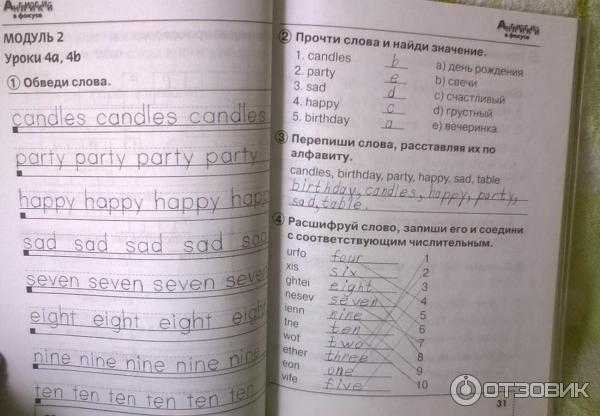 Английский
в фокусе
МОДУЛЬ 2
Уроки 4a, 4b
1 Обведи слова.
candles candles candles
party party party party
happy happy happy happy
sad sad sad sad sad
seven seven seven seven
eight eight eight eight
nine nine nine nine nine
ten ten ten ten ten ten
Английский
в фокусе
2 Прочти слова и найди значение.
1. candles b a) день рождения
2. party e b) свечи
3. sad d c) счастливый
4. happy c d) грустный
5. birthday a e) вечеринка
3 Перепиши слова, расставляя их по
алфавиту.
candles, birthday, party, happy, sad, table
birthday, candles, happy, party,
sad, table
4 Расшифруй слово, запиши его и соедини
с соответствующим числительным.
urfo four 1
xis six 2
ghtei eight 3
nesev seven 4
ienn nine 5
tne ten 6
wot two 7
ether three 8
eon one 9
vife five 10
31
ОТЗОВИК